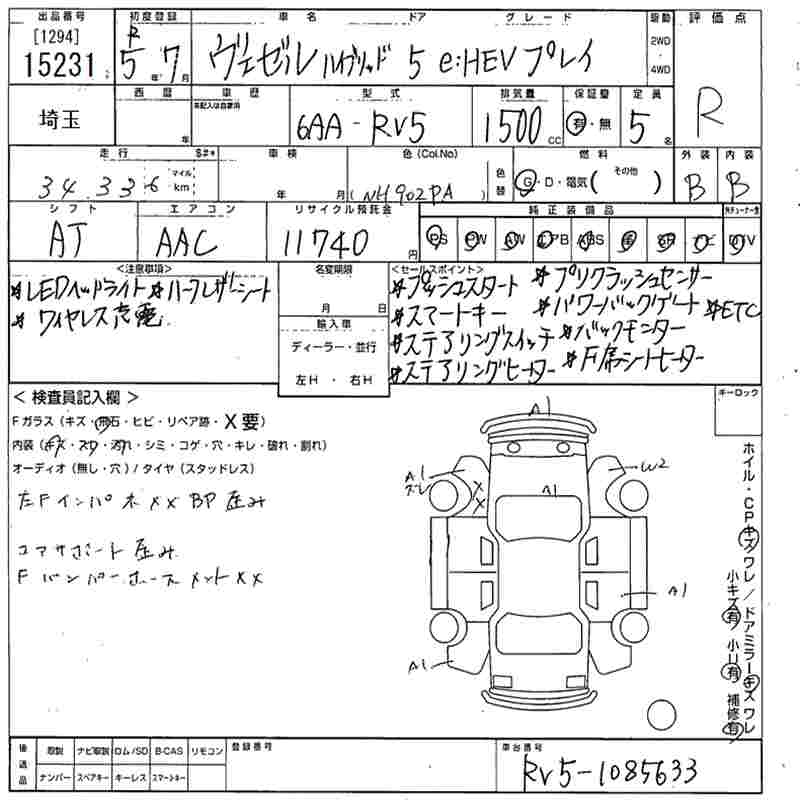 出品番号 初度登録 車名 ドア グレード 駆動 評価点
[1294] R
15231 5年 7月 ヴェゼルハイブリッド 5 e:HEV プレイ 2WD・4WD R
埼玉 西暦 年 車歴 未記入は自家用 型式 排気量 保証書 定員
6AA-RV5 1500cc 有・無 5名
走行 S#* 車検 色(Col,No) 燃料 外装 内装
34,336 マイル km 年 月 (NH902PA) 色替 G・D・電気( その他 ) B B
シフト エアコン リサイクル預託金 純正装備品
AT AAC 11740円 PS PW AW LPB ABS 革 SR ナビ TV
<注意事項> 名変期限 <セールスポイント>
*LEDヘッドライト *ハーフレザーシート
*ワイヤレス充電
月 日
輸入車
ディーラー・並行
左H ・ 右H
*プッシュスタート *プリクラッシュセンサー
*スマートキー *パワーバックゲート *ETC
*ステアリングスイッチ *バックモニター
*ステアリングヒーター *F席シートヒーター
<検査員記入欄> キーロック
Fガラス(キズ・飛石・ヒビ・リペア跡・X要)
内装(キズ・スワ・汚れ・シミ・コゲ・穴・キレ・破れ・割れ)
オーディオ(無し・穴)/タイヤ(スタッドレス)
左Fインパネ XX BP 歪み
コアサポート 歪み
Fバンパーホースメント XX
A1
A1 ズレ
X
X
A1
W2
A1
A1
ホイル・CPキズワレ/ドアミラーキズワレ
小キズ有 小凹有 補修有
後送品 取説 ナビ取説 ロム/SD B-CAS リモコン 登録番号 車台番号
ナンバー スペアキー キーレス スマートキー RV5-1085633